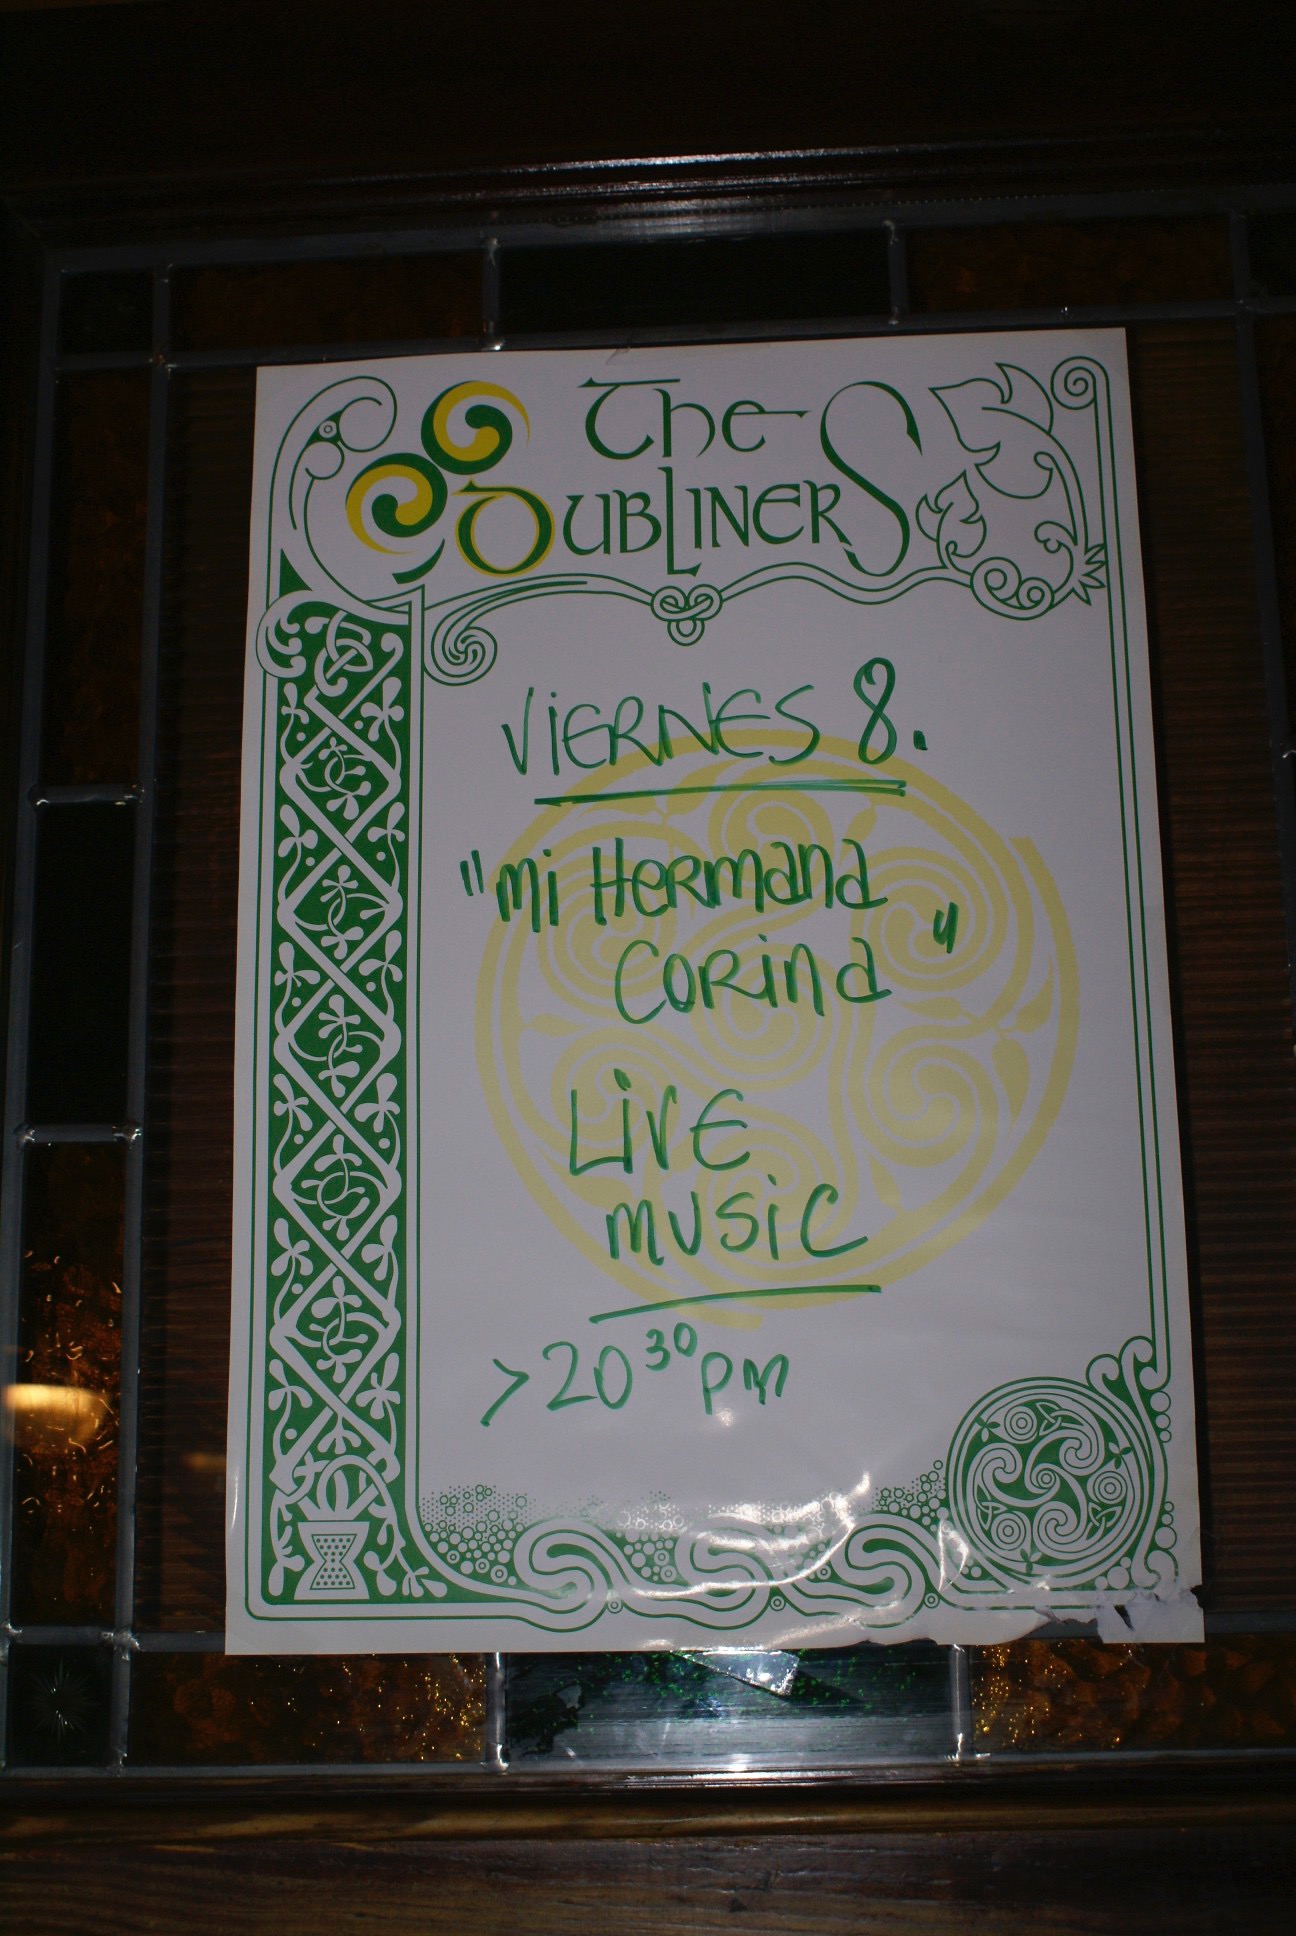 The
Dubliners
VIERNES 8.
"mi Hermana
Corina"
LIVE
music
>20³⁰pm